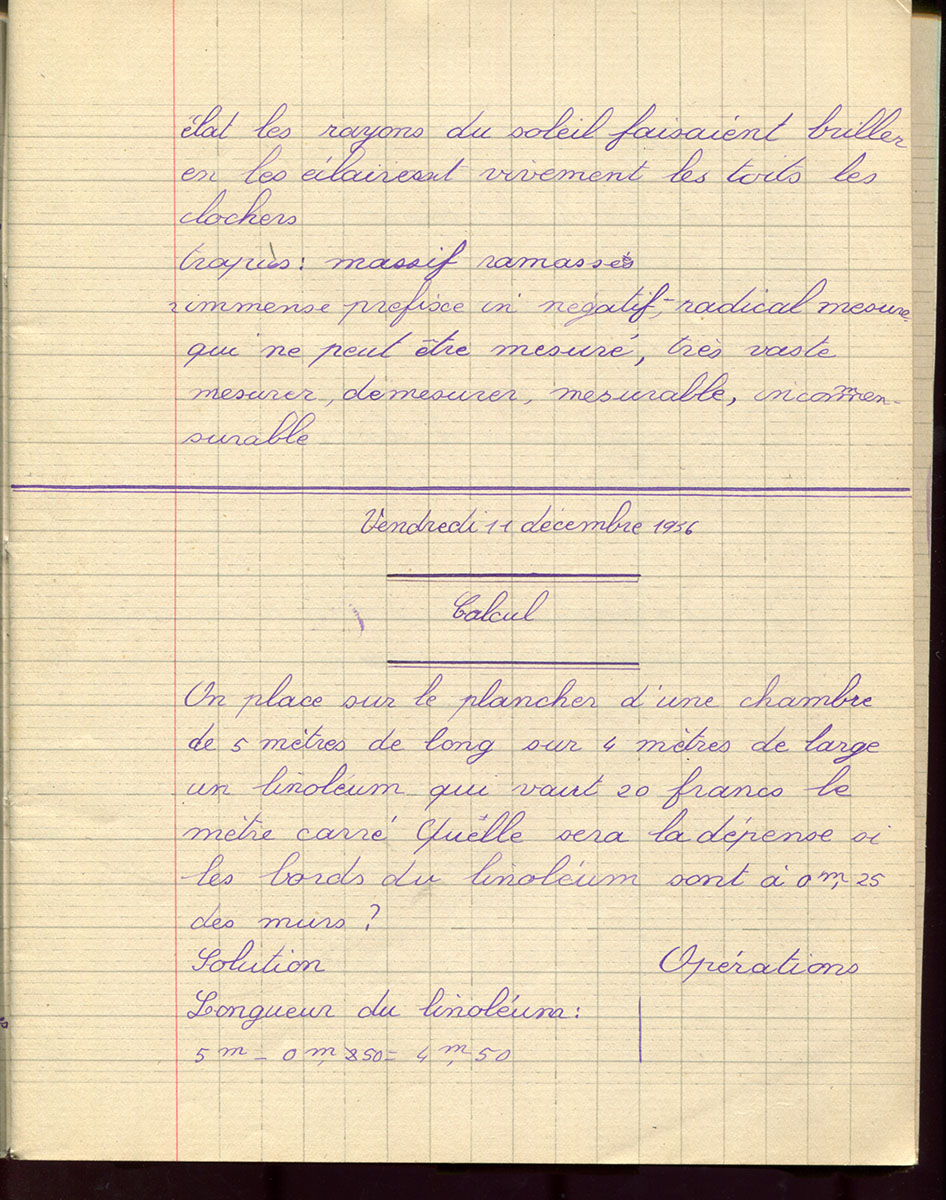 état les rayons du soleil faisaient briller
en les éclairant vivement les toits les
clochers
trapus : massif ramassés
immense prefixe in négatif, radical mesure
qui ne peut être mesuré, très vaste
mesurer, démesurer, mesurable, incommen-
surable
Vendredi 11 décembre 1956
Calcul
On place sur le plancher d'une chambre
de 5 mètres de long sur 4 mètres de large
un linoléum qui vaut 20 francs le
mètre carré Quelle sera la dépense si
les bords du linoléum sont à 0m,25
des murs ?
Solution Opérations
Longueur du linoléum :
5m - 0m,50 = 4m,50